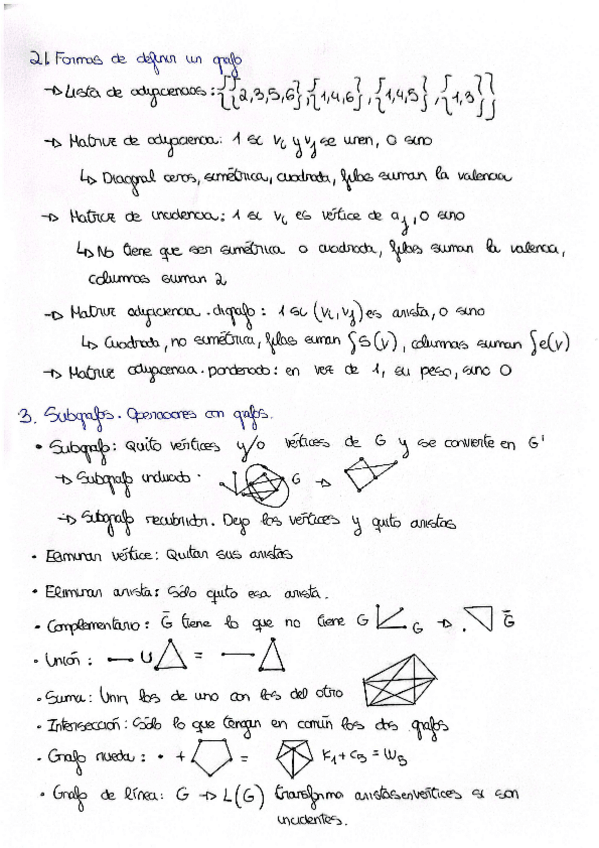 2.1. Formas de definir un grafo
→ Lista de adyacencias: {{2,3,5,6},{1,4,6},{1,4,5},{1,3}}
→ Matriz de adyacencia: 1 si vi y vj se unen, 0 sino
↳ Diagonal ceros, simétrica, cuadrada, filas suman la valencia
→ Matriz de incidencia: 1 si vi es vértice de aj, 0 sino
↳ No tiene que ser simétrica o cuadrada, filas suman la valencia,
columnas suman 2
→ Matriz adyacencia · digrafo: 1 si (vi, vj) es arista, 0 sino
↳ Cuadrada, no simétrica, filas suman ʃs(v), columnas suman ʃe(v)
→ Matriz adyacencia · ponderado: en vez de 1, su peso, sino 0
3. Subgrafos. Operaciones con grafos.
• Subgrafo: Quito vértices y/o vértices de G y se convierte en G'
→ Subgrafo inducido · G →
→ Subgrafo recubridor. Dejo los vértices y quito aristas
• Eliminar vértice: Quitar sus aristas
• Eliminar arista: Sólo quito esa arista.
• Complementario: Ḡ tiene lo que no tiene G G → Ḡ
• Unión: ∪ =
• Suma: Unir los de uno con los del otro
• Intersección: Sólo lo que tengan en común los dos grafos
• Grafo rueda: • + = K1 + C5 = W5
• Grafo de línea: G → L(G) transforma aristas en vértices si son
incidentes.